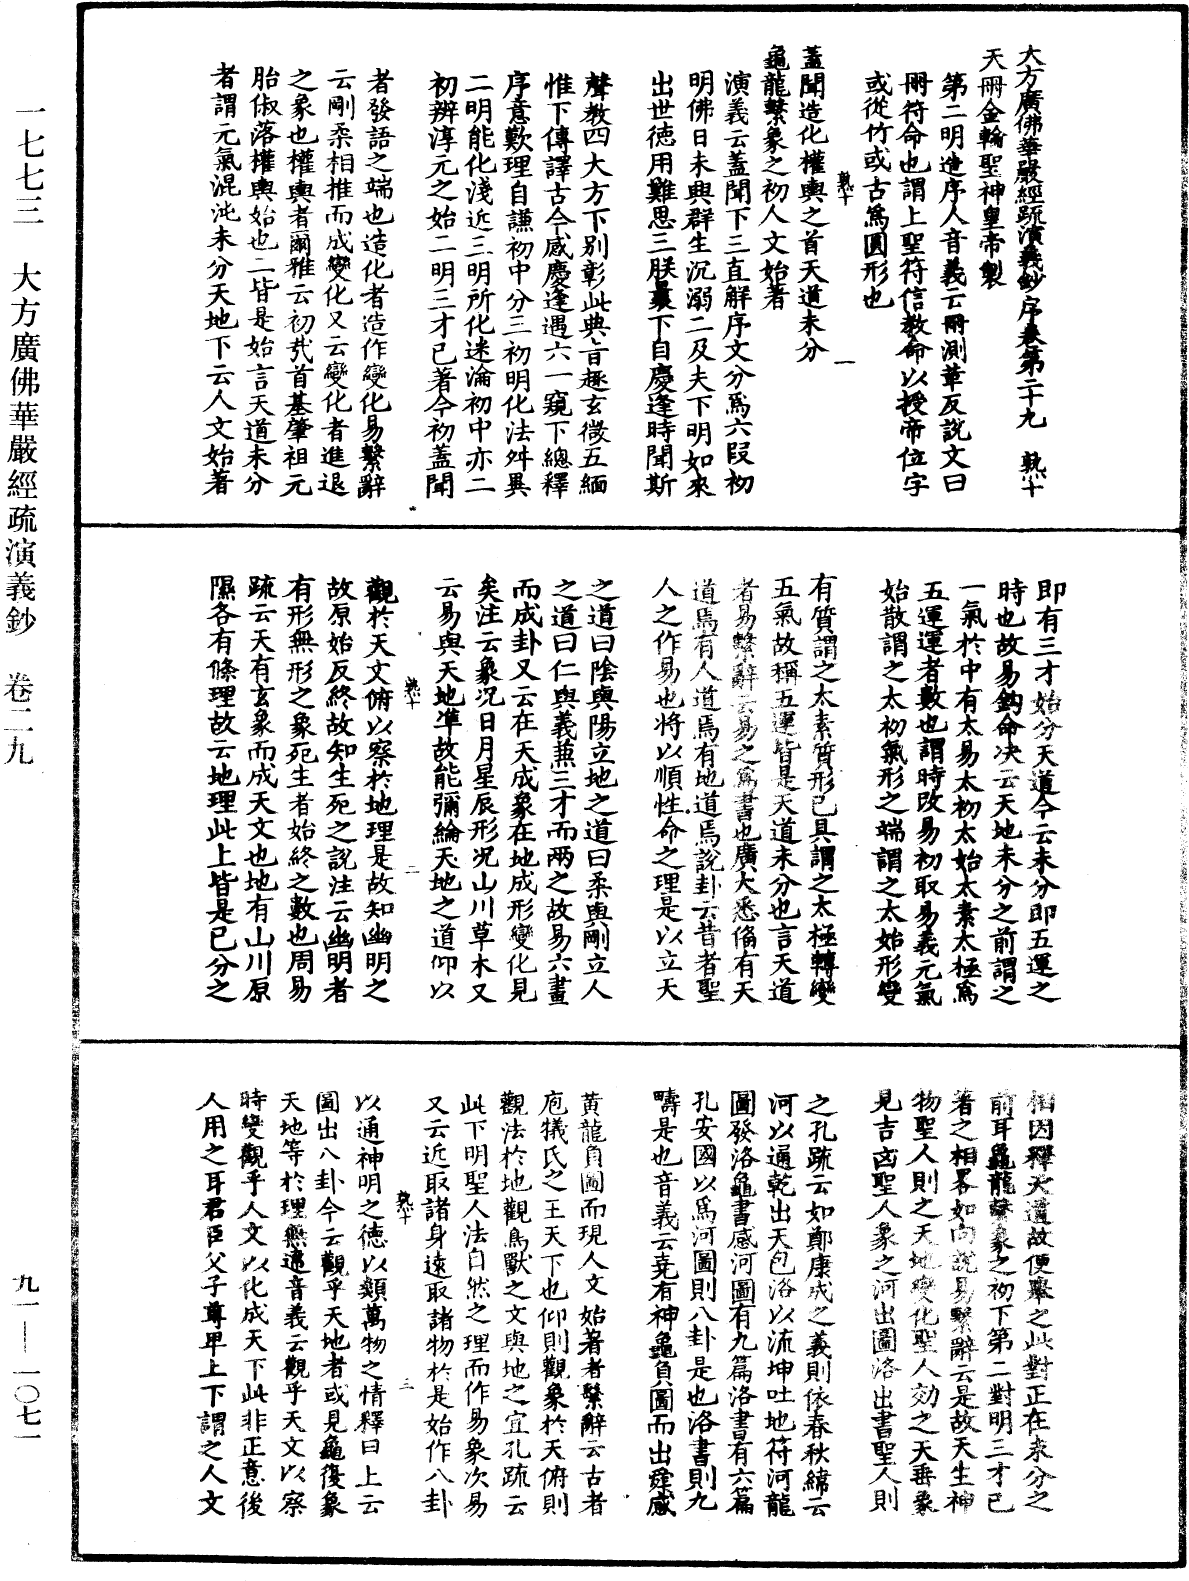 大方廣佛華嚴經疏演義鈔序卷第二十九 孰十
天冊金輪聖神皇帝製
第二明迻序人音義云冊測革反說文曰
冊符命也謂上聖符信教命以授帝位字
或從竹或古為圓形也
蓋聞造化權輿之首天道未分
龜龍繫象之初人文始著
演義云蓋聞下三直解序文分為六段初
明佛日未興群生沉溺二及夫下明如來
出世德用難思三朕曩下自慶逢時聞斯
聲教四大方下別彰此典旨趣玄微五緬
惟下傳譯古今感慶逢遇六一窺下總釋
序意歎理自謙初中分三初明化法舛異
二明能化淺近三明所化迷淪初中亦二
初辨淳元之始二明三才已著今初蓋聞
者發語之端也造化者造作變化易繫辭
云剛柔相推而成變化又云變化者進退
之象也權輿者爾雅云初哉首基肇祖元
胎俶落權輿始也二皆是始言天道未分
者謂元氣混沌未分天地下云人文始著
即有三才始分天道今云未分即五運之
時也故易鈎命决云天地未分之前謂之
一氣於中有太易太初太始太素太極為
五運運者數也謂時改易初取易義元氣
始散謂之太初氣形之端謂之太始形變
有質謂之太素質形已具謂之太極轉變
五氣故稱五運皆是天道未分也言天道
者易繫辭云易之為書也廣大悉備有天
道焉有人道焉有地道焉說卦云昔者聖
人之作易也將以順性命之理是以立天
之道曰陰與陽立地之道曰柔與剛立人
之道曰仁與義兼三才而兩之故易六畫
而成卦又云在天成象在地成形變化見
矣注云象況日月星辰形況山川草木又
云易與天地準故能彌綸天地之道仰以
觀於天文俯以察於地理是故知幽明之
故原始反終故知生死之說注云幽明者
有形無形之象死生者始終之數也周易
疏云天有玄象而成天文也地有山川原
隰各有條理故云地理此上皆是已分之
相因釋天道故便舉之此對正在未分之
前耳龜龍繫象之初下第二對明三才已
著之相畧如向說易繫辭云是故天生神
物聖人則之天地變化聖人効之天垂象
見吉凶聖人象之河出圖洛出書聖人則
之孔疏云如鄭康成之義則依春秋緯云
河以通乾出天包洛以流坤吐地符河龍
圖發洛龜書感河圖有九篇洛書有六篇
孔安國以為河圖則八卦是也洛書則九
疇是也音義云堯有神龜負圖而出舜感
黃龍負圖而現人文始著者繫辭云古者
庖犧氏之王天下也仰則觀象於天俯則
觀法於地觀鳥獸之文與地之宜孔疏云
此下明聖人法自然之理而作易象次易
又云近取諸身遠取諸物於是始作八卦
以通神明之德以類萬物之情釋曰上云
圖出八卦今云觀乎天地者或見龜復象
天地等於理無違音義云觀乎天文以察
時變觀乎人文以化成天下此非正意後
人用之耳君臣父子尊卑上下謂之人文
孰十
一
孰十
二
孰十
三
一七七三 大方廣佛華嚴經疏演義鈔 卷二九
九一——一〇七一